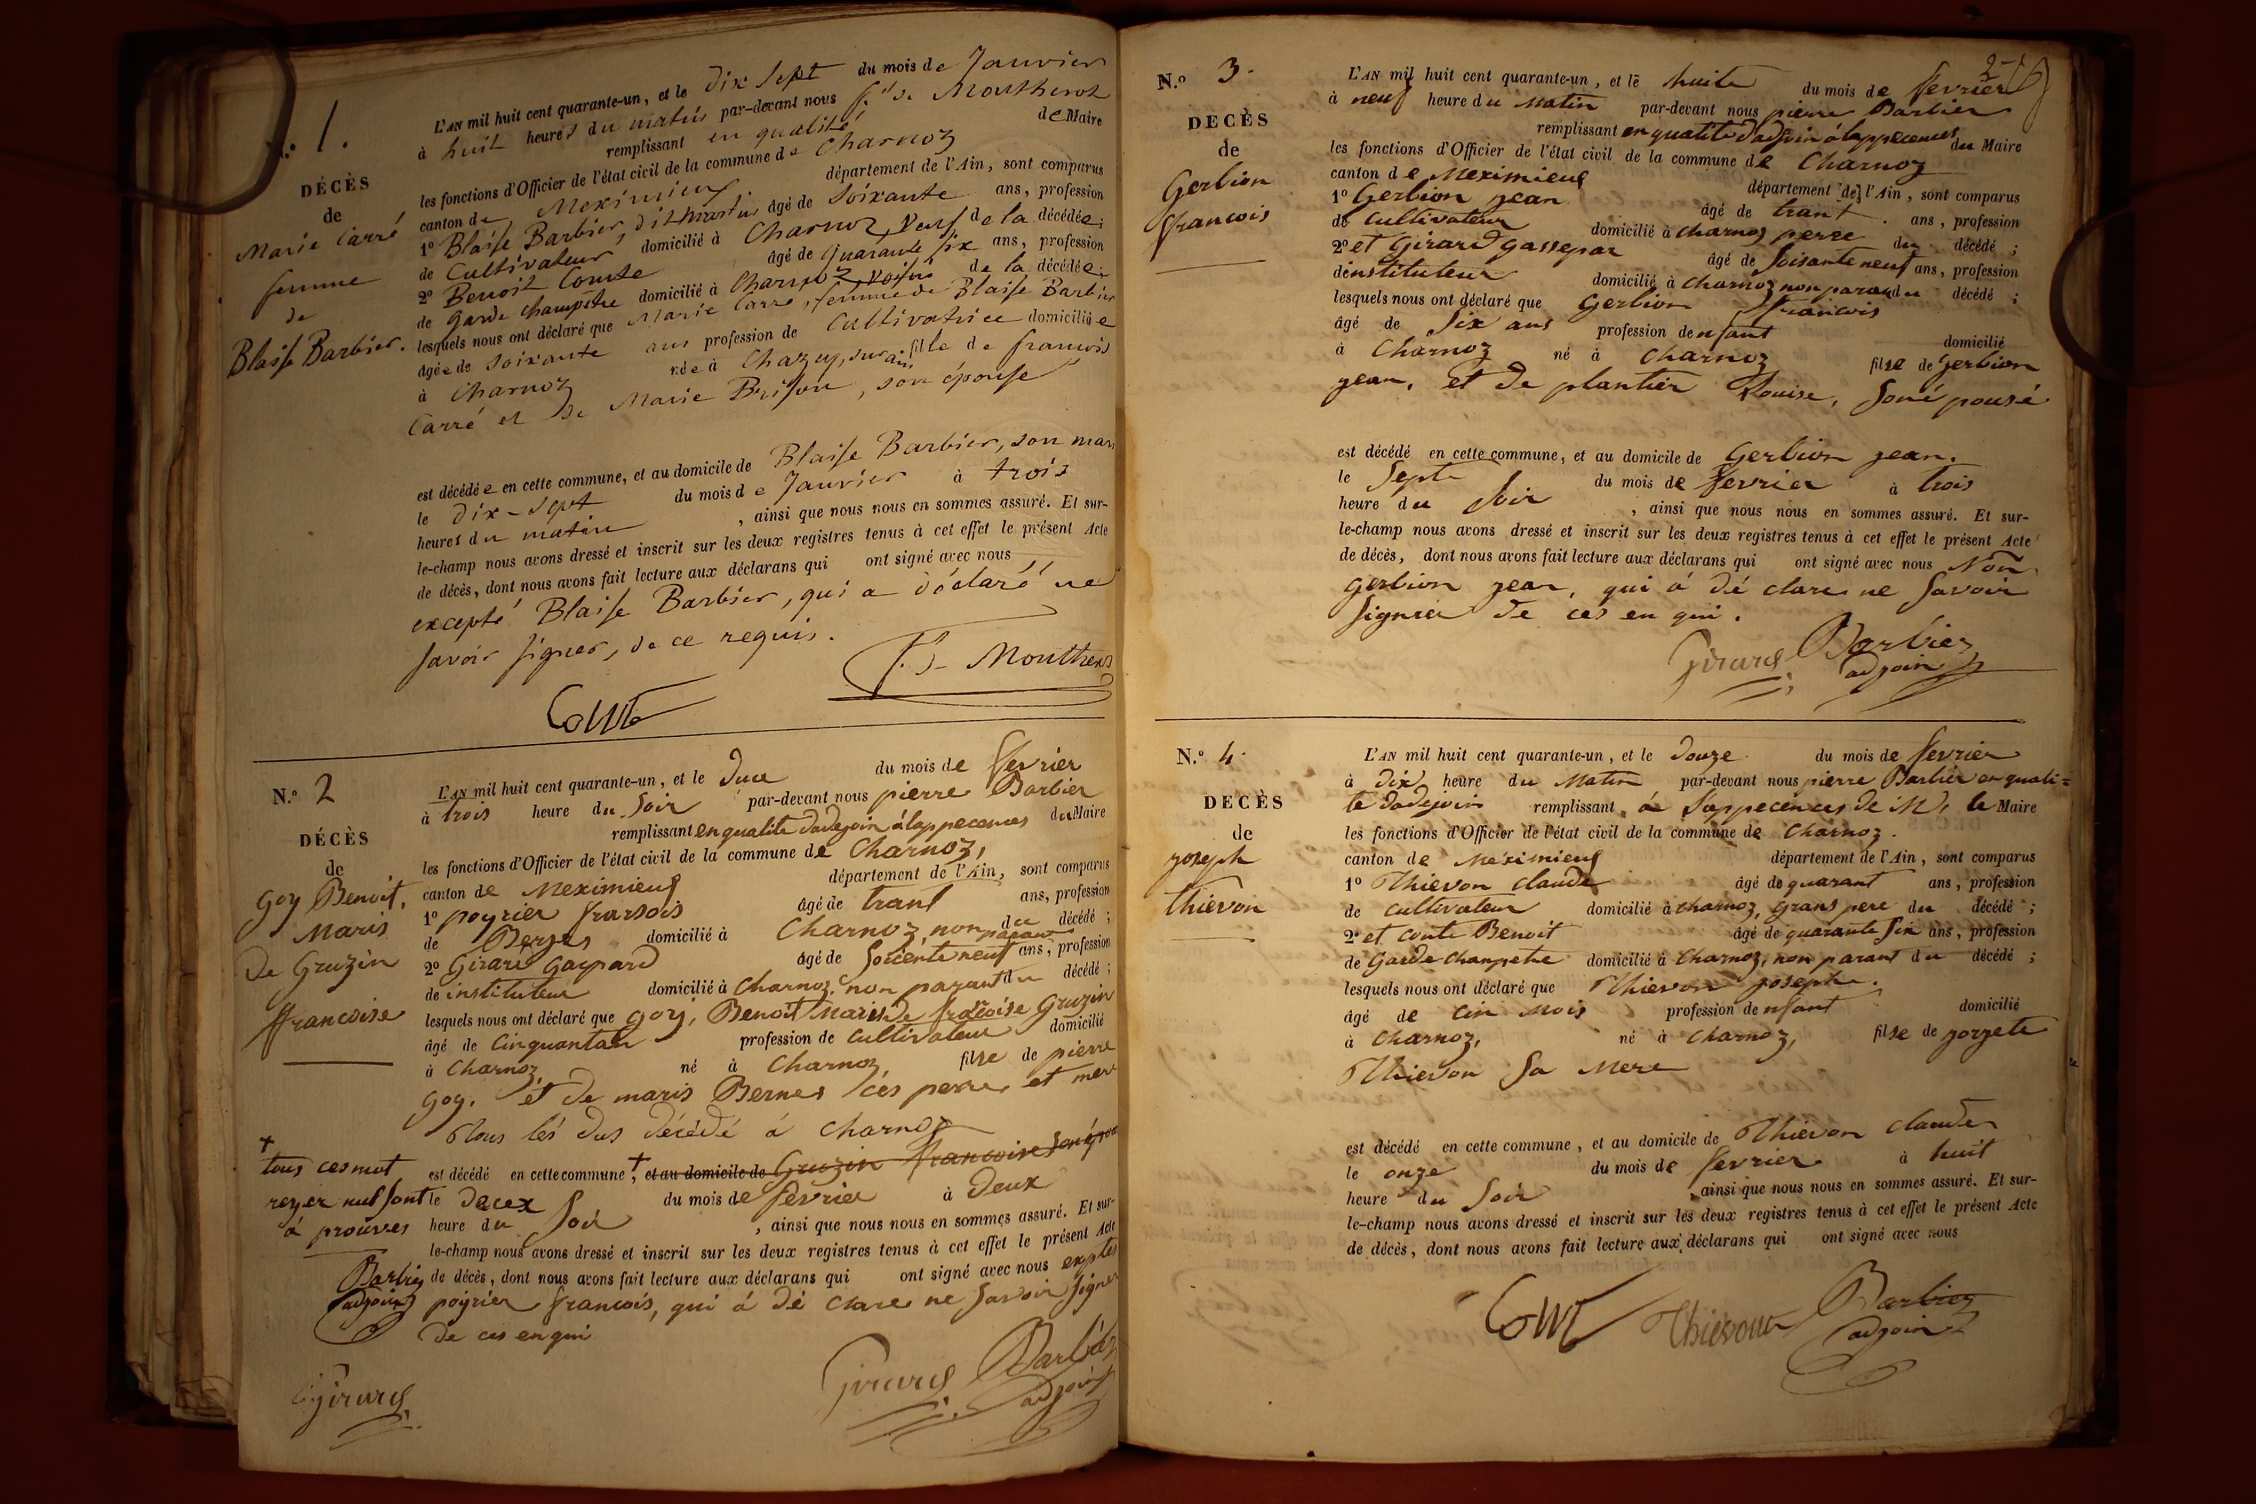 N.º 1.
DÉCÈS
de
Marie Carré
femme
de
Blaise Barbier.
L'AN mil huit cent quarante-un, et le dix sept du mois de Janvier
à huit heures du matin par-devant nous de Montherot
remplissant en qualité de Maire
les fonctions d'Officier de l'état civil de la commune de Charnoz
canton de Meximieux département de l'Ain, sont comparus
1º Blaise Barbier, dit martin âgé de soixante ans, profession
de Cultivateur domicilié à Charnoz, veuf de la décédée;
2º Benoit Comte âgé de quarante six ans, profession
de garde champêtre domicilié à Charnoz, voisin de la décédée;
lesquels nous ont déclaré que Marie Carré, femme de Blaise Barbier
âgée de soixante ans profession de Cultivatrice domiciliée
à Charnoz née à Chazey, sur ain fille de françois
Carré et de Marie Brison, son épouse
est décédée en cette commune, et au domicile de Blaise Barbier, son mari
le dix-sept du mois de Janvier à trois
heures du matin, ainsi que nous nous en sommes assuré. Et sur-
le-champ nous avons dressé et inscrit sur les deux registres tenus à cet effet le présent Acte
de décès, dont nous avons fait lecture aux déclarans qui ont signé avec nous
excepté Blaise Barbier, qui a déclaré ne
savoir signer, de ce requis.
Comte
N.º 2
DÉCÈS
de
Goy Benoit,
Maris
de Gruzin
françoise
L'AN mil huit cent quarante-un, et le duce du mois de fevrier
à trois heure du soir par-devant nous pierre Barbier
remplissant en qualite dadejoin á lappecences du Maire
les fonctions d'Officier de l'état civil de la commune de Charnoz,
canton de Meximieuf département de l'Ain, sont comparus
1º poyrier fransois âgé de trant ans, profession
de Berges domicilié à Charnoz, non parant du décédé;
2º Girard Gaspard âgé de soicente neuf ans, profession
de instituteur domicilié à Charnoz, non parant du décédé;
lesquels nous ont déclaré que goy, Benoit Maris de francoise Gruzin
âgé de cinquantan profession de cultivateur domicilié
à Charnoz né à Charnoz filse de pierre
goy. et de maris Bernes cés perre, et mere
tous lés dus décédé á charnoz
est décédé en cette commune †, et au domicile de Gruzin francoise
le deuex du mois de fevrier à deux
heure du soir, ainsi que nous nous en sommes assuré. Et sur-
le-champ nous avons dressé et inscrit sur les deux registres tenus à cet effet le présent Acte
de décès, dont nous avons fait lecture aux déclarans qui ont signé avec nous
poyrier francois, qui á dé clare ne savoir signer
de ces enqui
† tous ces mot
reyer nul sont
á prouves
Barbier
adjoint
Girard
Girard Barbier
adjoint
N.º 3.
DECÈS
de
Gerbion
francois
L'AN mil huit cent quarante-un, et le huite du mois de fevrier
à neuf heure du Matin par-devant nous pierre Barbier
remplissant en qualite dadjoin á lappecences du Maire
les fonctions d'Officier de l'état civil de la commune de Charnoz
canton de Meximieuf département de l'Ain, sont comparus
1º Gerbion jean âgé de trant ans, profession
de Cultivateur domicilié à charnoz perre du décédé;
2º et Girard gassepar âgé de soisante neuf ans, profession
de instituteur domicilié à charnoz non parandu décédé;
lesquels nous ont déclaré que Gerbion francois
âgé de six ans profession denfant domicilié
à Charnoz né à Charnoz filse de Gerbion
jean, et de plantier Louise, soné pousé
est décédé en cette commune, et au domicile de Gerbion jean.
le septe du mois de fevrier à trois
heure du soir, ainsi que nous nous en sommes assuré. Et sur-
le-champ nous avons dressé et inscrit sur les deux registres tenus à cet effet le présent Acte
de décès, dont nous avons fait lecture aux déclarans qui ont signé avec nous Non
Gerbion jean, qui á dé clare ne savoir
signer de ces en qui.
Girard Barbier
adjoin
N.º 4.
DECÈS
de
joseph
thievon
L'AN mil huit cent quarante-un, et le douze du mois de fevrier
à dix heure du Matin par-devant nous pierre Barbier en quali=
te dadejoin remplissant á lappecences de Mr le Maire
les fonctions d'Officier de l'état civil de la commune de Charnoz.
canton de Meximieuf département de l'Ain, sont comparus
1º Thievon claude âgé de quarant ans, profession
de cultivateur domicilié à charnoz, grans pere du décédé;
2º et conte Benoit âgé de quarante six ans, profession
de Garde champetre domicilié à Charnoz, non parant du décédé;
lesquels nous ont déclaré que Thievon joseph.
âgé de cin mois profession denfant domicilié
à Charnoz, né à Charnoz, filse de jorzete
Thievon sa mere
est décédé en cette commune, et au domicile de Thievon claude
le onze du mois de fevrier à huit
heure du soir ainsi que nous nous en sommes assuré. Et sur-
le-champ nous avons dressé et inscrit sur les deux registres tenus à cet effet le présent Acte
de décès, dont nous avons fait lecture aux déclarans qui ont signé avec nous
Comte Thievon Barbier
adjoin